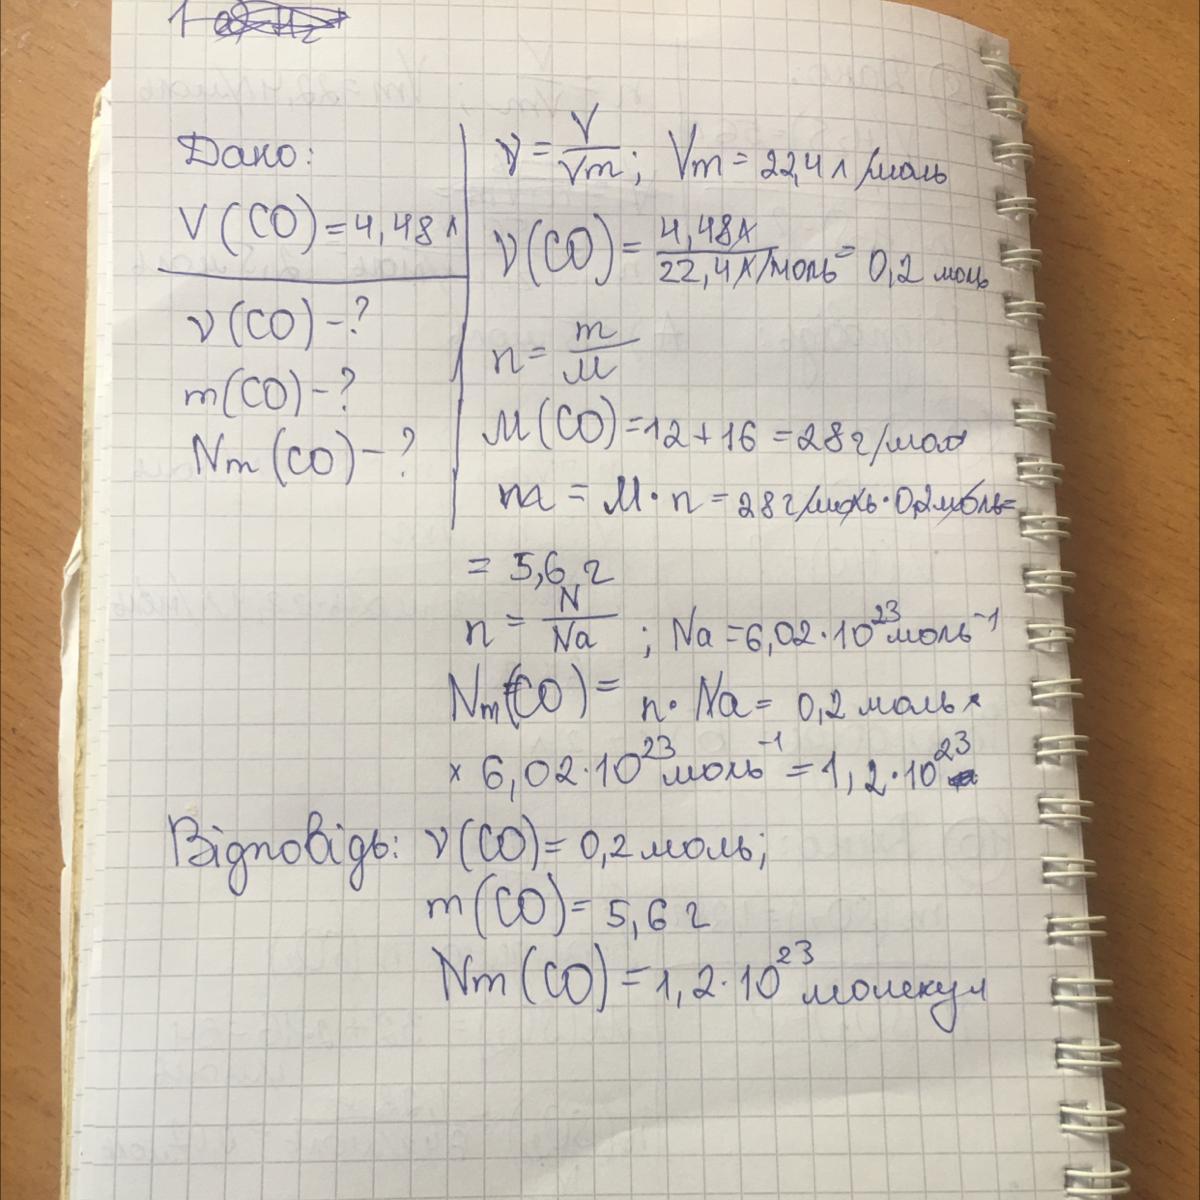 Дано:
V(CO)=4,48л
ν(CO)-?
m(CO)-?
Nm(CO)-?
ν = V/Vm; Vm = 22,4 л/моль
ν(CO) = 4,48л/22,4л/моль = 0,2 моль
n = m/M
M(CO)=12+16=28г/мол
m = M·n = 28г/моль·0,2моль=
= 5,6 г
n = N/Na ; Na = 6,02·10²³моль⁻¹
Nm(CO) = n·Na = 0,2 моль×
× 6,02·10²³моль⁻¹ = 1,2·10²³
Відповідь: ν(CO) = 0,2 моль;
m(CO) = 5,6 г
Nm(CO) = 1,2·10²³ молекул